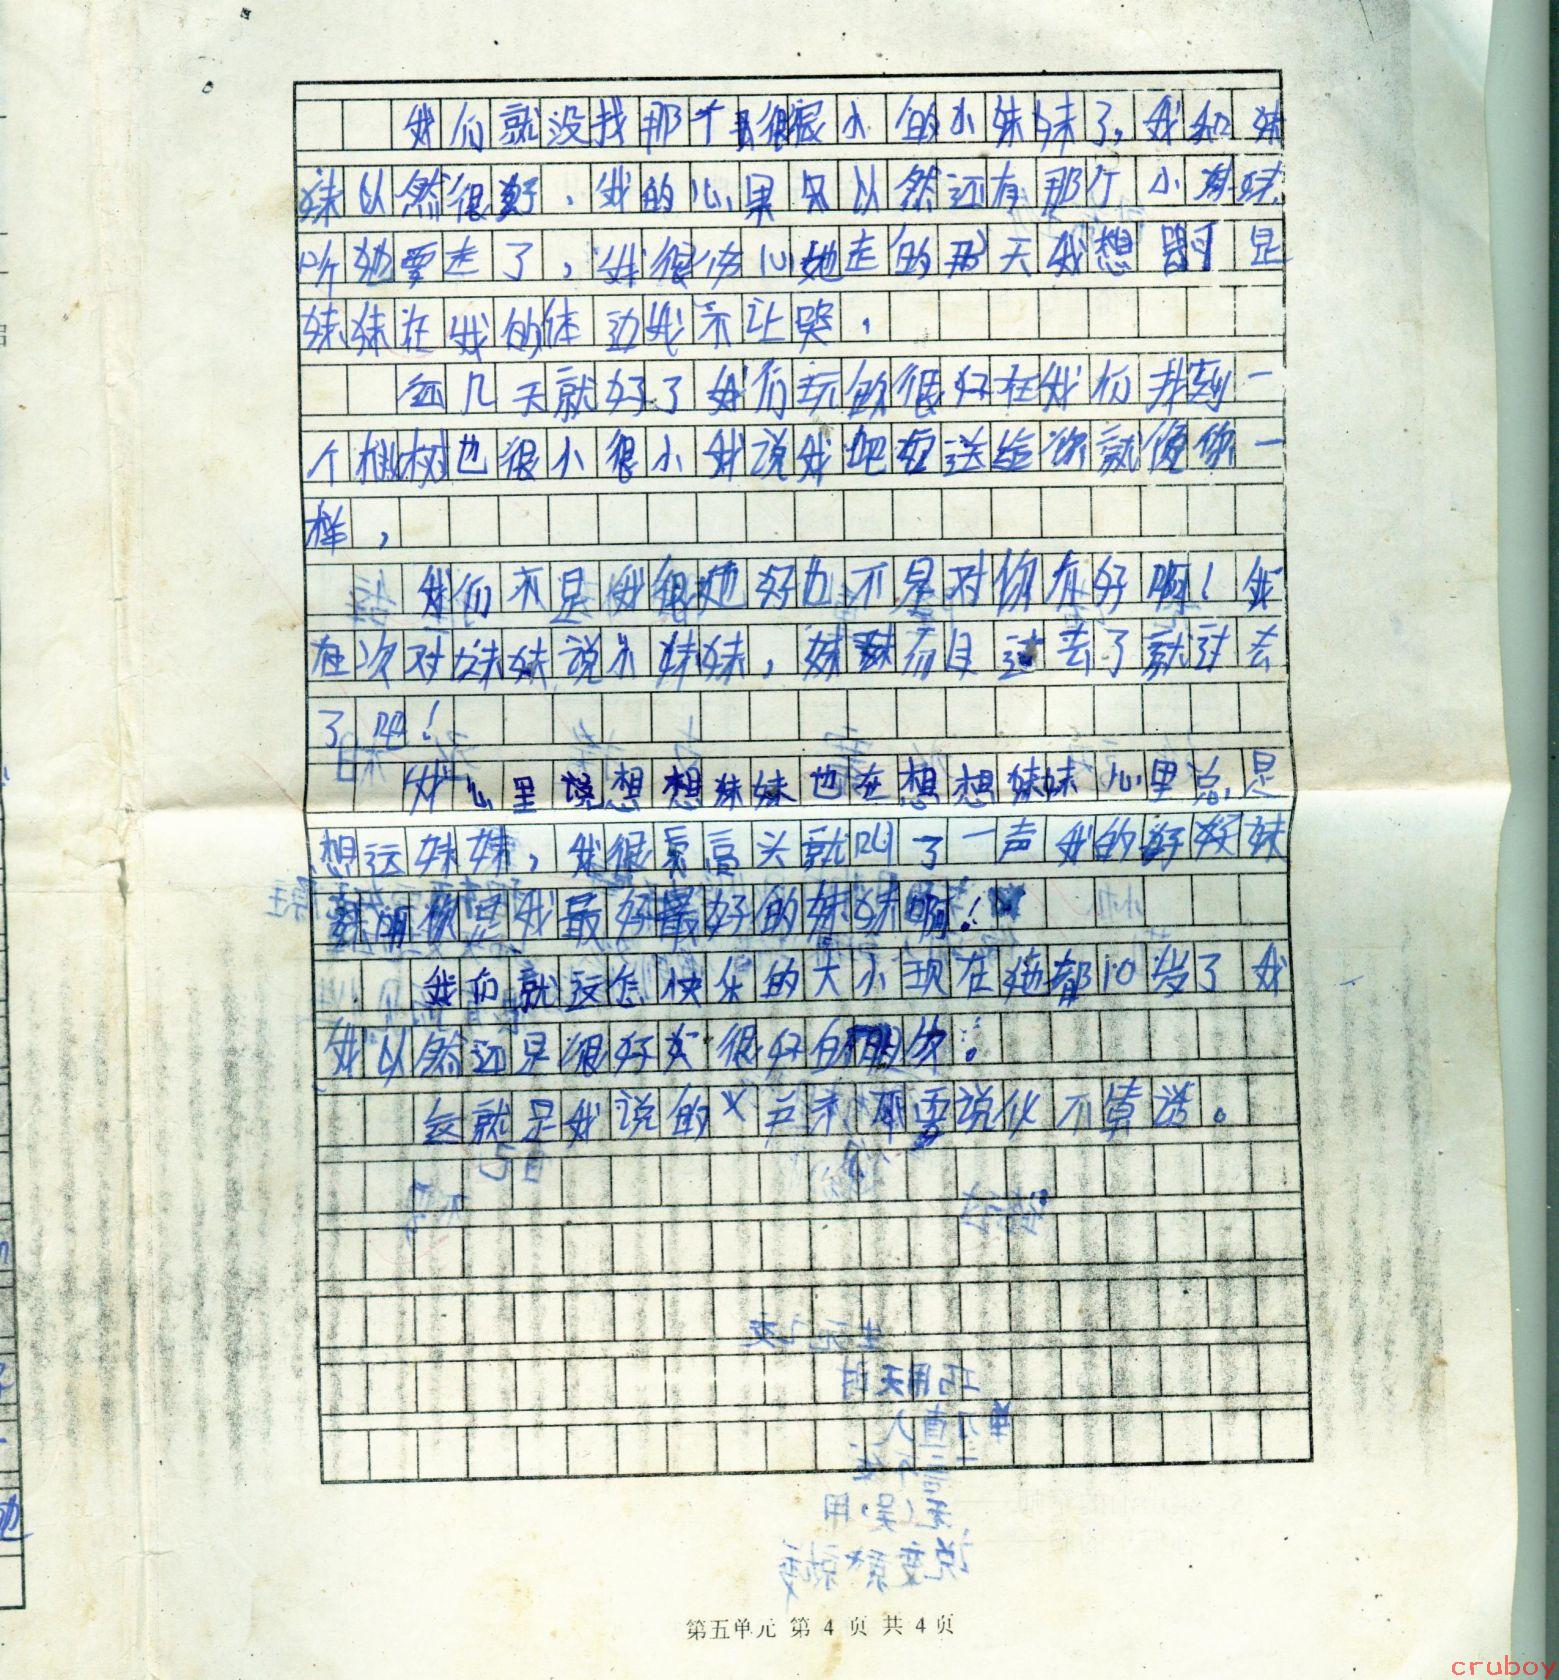 我们就没找那个很很小的小妹妹了。我和妹
妹以然很好，我的心果只以然还有那个小妹妹
听她要走了，我很伤心她走的那天我想哭可是
妹妹在我的体边我不让哭，
这几天就好了我们玩的很好在我们找到一
个桃树也很小很小我说我把它送给你就像你一
样，
我们不是我很她好也不是对你在好啊！我
在次对妹妹说小妹妹，妹妹不过去了就过去
了吧！
我心里说想想妹妹也在想想妹妹心里总是
想这妹妹，我很高头就叫了一声我的好好妹
妹你是我最好最好的妹妹啊！
我们就这怎快乐的大小现在她都10岁了我
我以然还是很好很好的朋友。
这就是我说的不要说似不真诱。
第五单元 第 4 页 共 4 页
cruboy